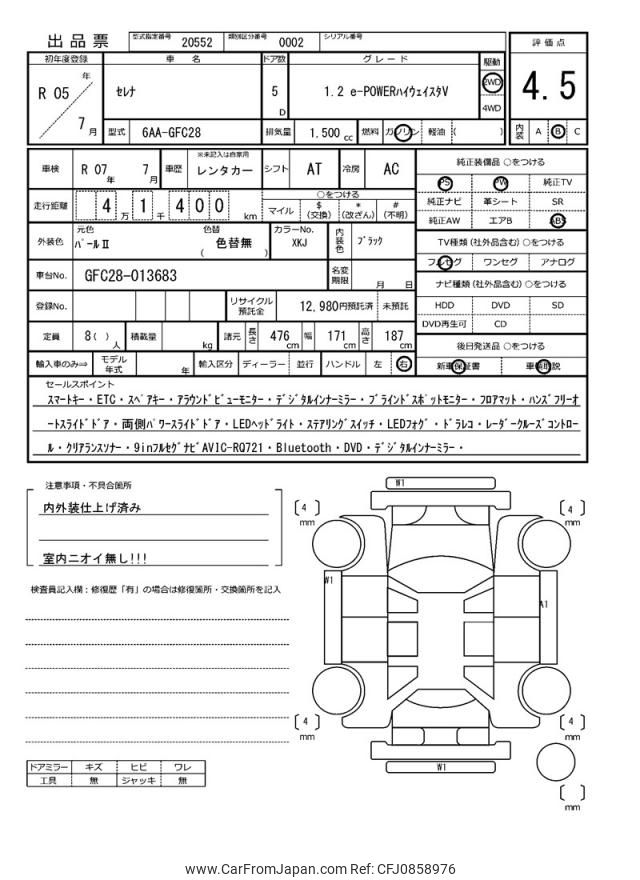 出品票 型式指定番号 20552 類別区分番号 0002 シリアル番号
初年度登録 車名 ドア数 グレード 駆動 評価点
R 05 年 7 月 セレナ 5 D 1.2 e-POWERハイウェイスタV 2WD 4WD 4.5
型式 6AA-GFC28 排気量 1.500 cc 燃料 ガソリン 軽油 ( ) 内装 A B C
車検 R 07 年 7 月 車歴 ※未記入は自家用 レンタカー シフト AT 冷房 AC
走行距離 4 万 1 千 4 0 0 km ○をつける マイル $(交換) *(改ざん) #(不明)
外装色 元色 パールⅡ 色替 色替無 ( ) カラーNo. XKJ 内装色 ブラック
車台No. GFC28-013683 名変期限 月 日
登録No. リサイクル預託金 12,980円預託済 未預託
定員 8( ) 人 積載量 kg 諸元 長さ 476 cm 幅 171 cm 高さ 187 cm
輸入車のみ⇒ モデル年式 年 輸入区分 ディーラー 並行 ハンドル 左 右
純正装備品 ○をつける
PS PW 純正TV
純正ナビ 革シート SR
純正AW エアB ABS
TV種類 (社外品含む) ○をつける
フルセグ ワンセグ アナログ
ナビ種類 (社外品含む) ○をつける
HDD DVD SD
DVD再生可 CD
後日発送品 ○をつける
新車保証書 車輌取説
セールスポイント
スマートキー・ETC・スペアキー・アラウンドビューモニター・デジタルインナーミラー・ブラインドスポットモニター・フロアマット・ハンズフリーオ
ートスライドドア・両側パワースライドドア・LEDヘッドライト・ステアリングスイッチ・LEDフォグ・ドラレコ・レーダークルーズコントロー
ル・クリアランスソナー・9inフルセグナビAVIC-RQ721・Bluetooth・DVD・デジタルインナーミラー・
注意事項・不具合箇所
内外装仕上げ済み
室内ニオイ無し!!!
検査員記入欄：修復歴「有」の場合は修復箇所・交換箇所を記入
ドアミラー キズ ヒビ ワレ
工具 無 ジャッキ 無
W1
4 mm
4 mm
W1
A1
4 mm
4 mm
W1
mm
www.CarFromJapan.com Ref: CFJ0858976